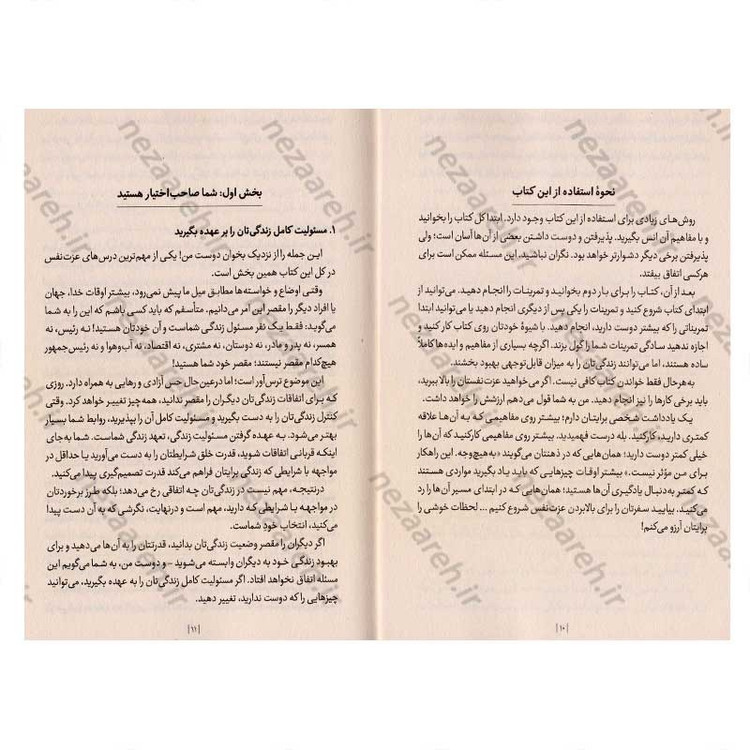 نحوهٔ استفاده از این کتاب
روش‌های زیادی برای استفاده از این کتاب وجود دارد. ابتدا کل کتاب را بخوانید
و با مفاهیم آن انس بگیرید. پذیرفتن و دوست داشتن بعضی از آن‌ها آسان است؛ ولی
پذیرفتن برخی دیگر دشوارتر خواهد بود. نگران نباشید. این مسئله ممکن است برای
هرکسی اتفاق بیفتد.
بعد از آن، کتاب را برای بار دوم بخوانید و تمرینات را انجام دهید. می‌توانید از
ابتدای کتاب شروع کنید و تمرینات را یکی پس از دیگری انجام دهید یا می‌توانید ابتدا
تمریناتی را که بیشتر دوست دارید، انجام دهید. با شیوهٔ خودتان روی کتاب کار کنید و
اجازه ندهید سادگی تمرینات شما را گول بزند. اگرچه بسیاری از مفاهیم و ایده‌ها کاملاً
ساده هستند، اما می‌توانند زندگی‌تان را به میزان قابل‌توجهی بهبود بخشند.
به‌هرحال فقط خواندن کتاب کافی نیست. اگر می‌خواهید عزت‌نفستان را بالا ببرید،
باید برخی کارها را نیز انجام دهید. من به شما قول می‌دهم ارزشش را خواهد داشت.
یک یادداشت شخصی برایتان دارم؛ بیشتر روی مفاهیمی که به آن‌ها علاقه
کمتری دارید، کار کنید. بله درست فهمیدید. بیشتر روی مفاهیمی کار کنید که آن‌ها را
خیلی کمتر دوست دارید؛ همان‌هایی که در ذهنتان می‌گویند «به‌هیچ‌وجه. این راهکار
برای من مؤثر نیست.» بیشتر اوقات چیزهایی که باید یاد بگیرید مواردی هستند
که کمتر به‌دنبال یادگیری آن‌ها هستید؛ همان‌هایی که در ابتدای مسیر آن‌ها را رد
می‌کنید. بیایید سفرتان را برای بالابردن عزت‌نفس شروع کنیم ... لحظات خوشی را
برایتان آرزو می‌کنم!
|۱۰|
بخش اول: شما صاحب‌اختیار هستید
۱. مسئولیت کامل زندگی‌تان را بر عهده بگیرید
این جمله را از نزدیک بخوان دوست من! یکی از مهم‌ترین درس‌های عزت‌نفس
در کل این کتاب همین بخش است.
وقتی اوضاع و خواسته‌ها مطابق میل ما پیش نمی‌رود، بیشتر اوقات خدا، جهان
یا افراد دیگر را مقصر این امر می‌دانیم. متأسفم که باید کسی باشم که این را به شما
می‌گوید: فقط یک نفر مسئول زندگی شماست و آن خودتان هستید! نه رئیس، نه
همسر، نه پدر و مادر، نه دوستان، نه مشتری، نه اقتصاد، نه آب‌وهوا و نه رئیس‌جمهور
هیچ‌کدام مقصر نیستند؛ مقصر خود شما هستید!
این موضوع ترس‌آور است؛ اما درعین‌حال حس آزادی و رهایی به همراه دارد. روزی
که برای اتفاقات زندگی‌تان دیگران را مقصر ندانید، همه‌چیز تغییر خواهد کرد. وقتی
کنترل زندگی‌تان را به دست بگیرید و مسئولیت کامل آن را بپذیرید، روابط شما بسیار
بهتر می‌شود. به عهده گرفتن مسئولیت زندگی، تعهد زندگی شماست. شما به‌جای
اینکه قربانی اتفاقات شوید، قدرت خلق شرایطتان را به دست می‌آورید یا حداقل در
مواجهه با شرایطی که زندگی برایتان فراهم می‌کند قدرت تصمیم‌گیری پیدا می‌کنید.
درنتیجه، مهم نیست در زندگی‌تان چه اتفاقی رخ می‌دهد؛ بلکه طرز برخوردتان
در مواجهه با شرایطی که دارید، مهم است و درنهایت، نگرشی که به آن دست پیدا
می‌کنید، انتخاب خود شماست.
اگر دیگران را مقصر وضعیت زندگی‌تان بدانید، قدرتتان را به آن‌ها می‌دهید و برای
بهبود زندگی خود به دیگران وابسته می‌شوید – و دوست من، به شما می‌گویم این
مسئله اتفاق نخواهد افتاد. اگر مسئولیت کامل زندگی‌تان را به عهده بگیرید، می‌توانید
چیزهایی را که دوست ندارید، تغییر دهید.
|۱۱|
nezaareh.ir
nezaareh.ir
nezaareh.ir
nezaareh.ir
nezaareh.ir
nezaareh.ir